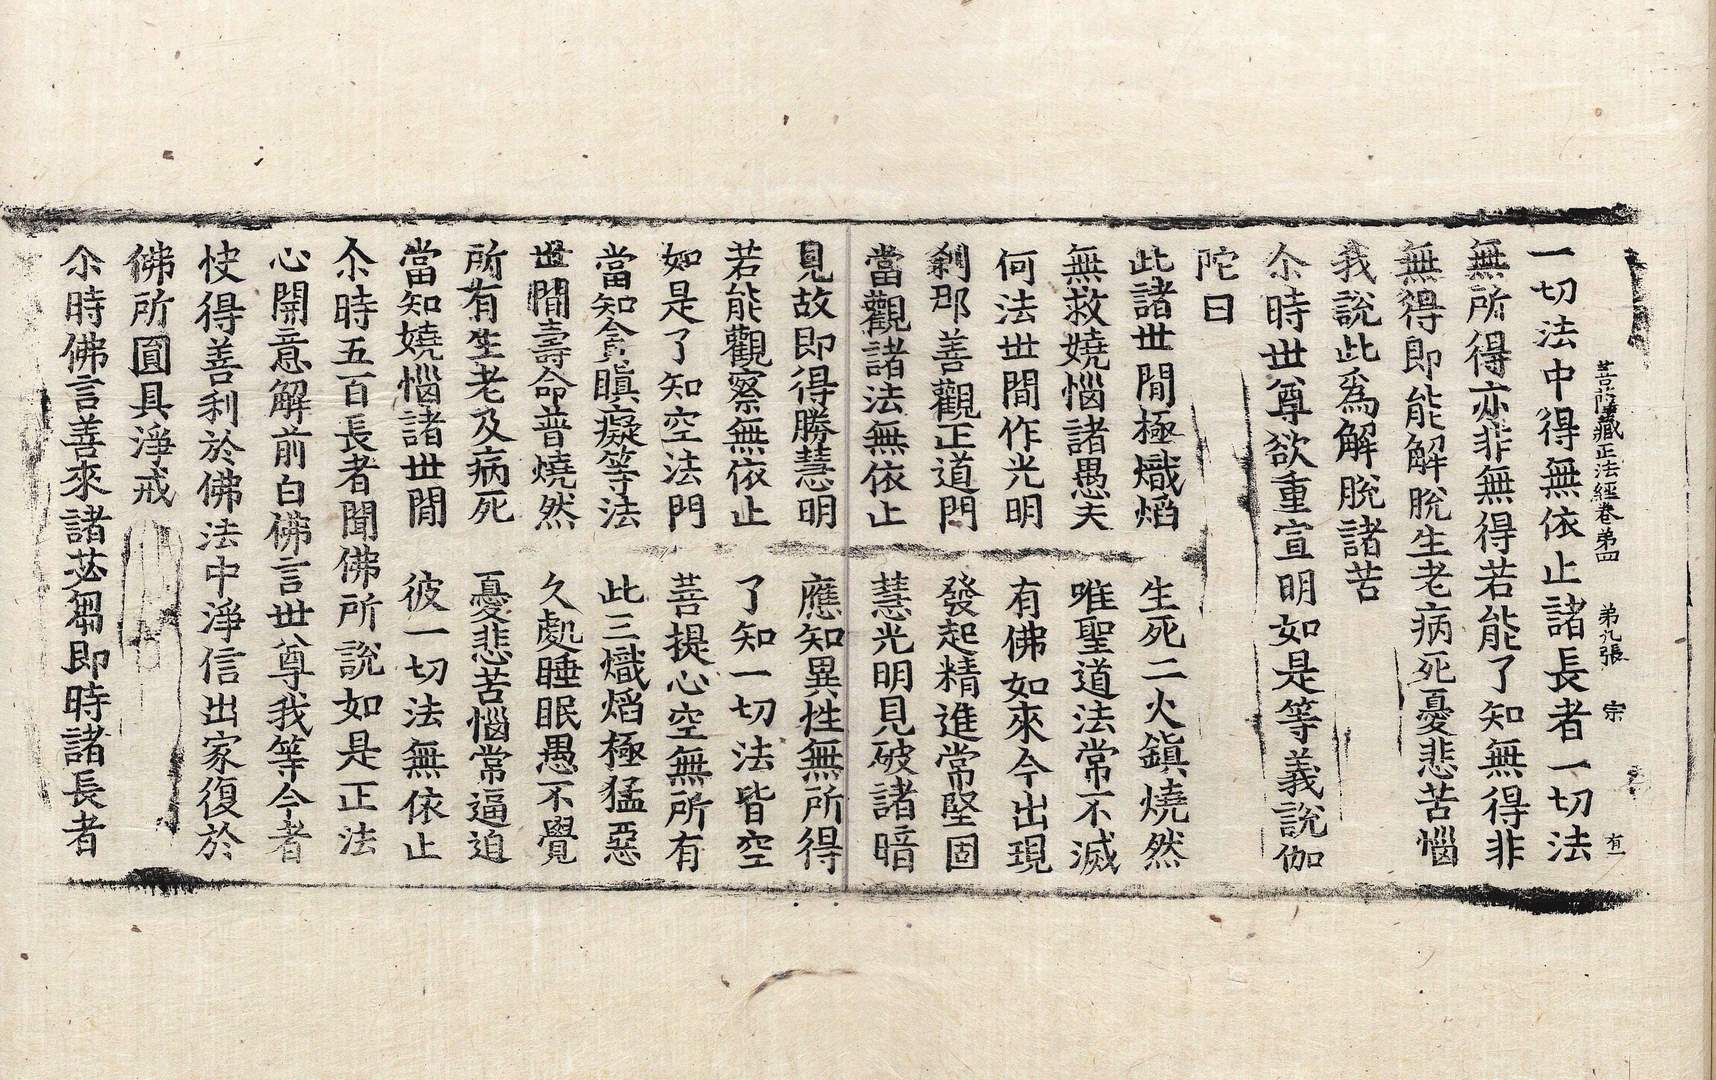 菩薩藏正法經卷第四 第九張 宗 有
一切法中得無依止諸長者一切法
無所得亦非無得若能了知無得非
無得即能解脫生老病死憂悲苦惱
我說此為解脫諸苦
尒時世尊欲重宣明如是等義說伽
陀曰
此諸世間極熾焰 生死二火鎮燒然
無救嬈惱諸愚夫 唯聖道法常不滅
何法世間作光明 有佛如來今出現
剎那善觀正道門 發起精進常堅固
當觀諸法無依止 慧光明見破諸暗
見故即得勝慧明 應知異性無所得
若能觀察無依止 了知一切法皆空
如是了知空法門 菩提心空無所有
當知貪瞋癡等法 此三熾焰極猛惡
世間壽命普燒然 久處睡眠愚不覺
所有生老及病死 憂悲苦惱常逼迫
當知嬈惱諸世間 彼一切法無依止
尒時五百長者聞佛所說如是正法
心開意解前白佛言世尊我等今者
快得善利於佛法中淨信出家復於
佛所圓具淨戒
尒時佛言善來諸苾芻即時諸長者